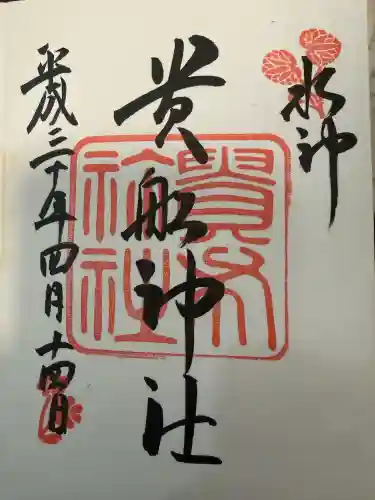 水神
貴船神社
平成三十年四月十四日